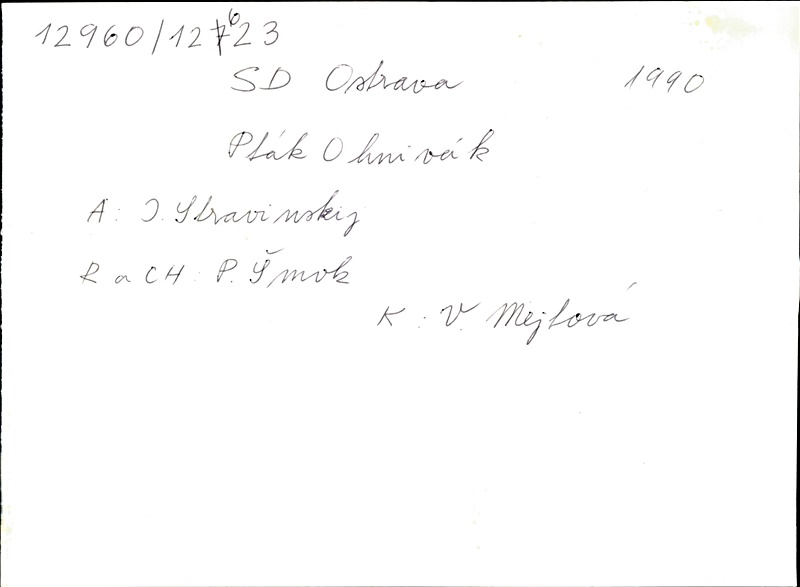 12960/12623
SD Ostrava 1990
Pták Ohnivák
A: I. Stravinskij
R a CH: P. Šmok
K: V. Mejtová